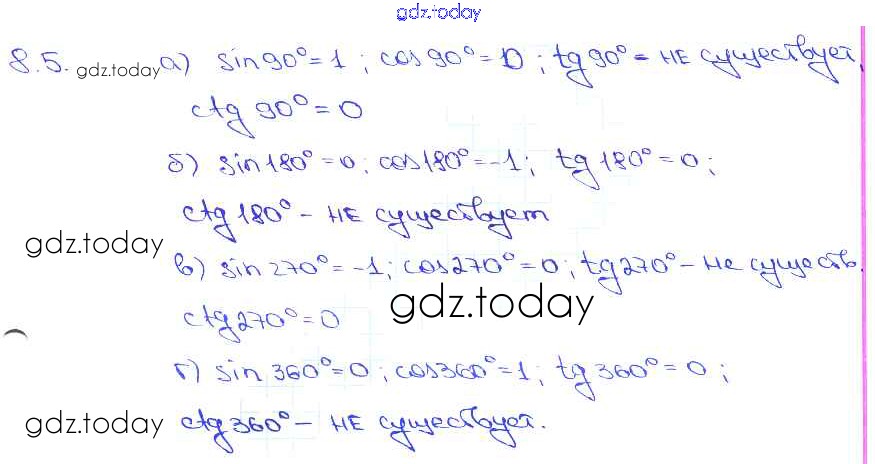 gdz.today
8.5. gdz.today а) sin 90° = 1 ; cos 90° = 0 ; tg 90° - не существует,
ctg 90° = 0
б) sin 180° = 0 ; cos 180° = -1 ; tg 180° = 0 ;
ctg 180° - не существует
gdz.today
в) sin 270° = -1 ; cos 270° = 0 ; tg 270° - не существ.
gdz.today
ctg 270° = 0
г) sin 360° = 0 ; cos 360° = 1 ; tg 360° = 0 ;
gdz.today
ctg 360° - не существует.